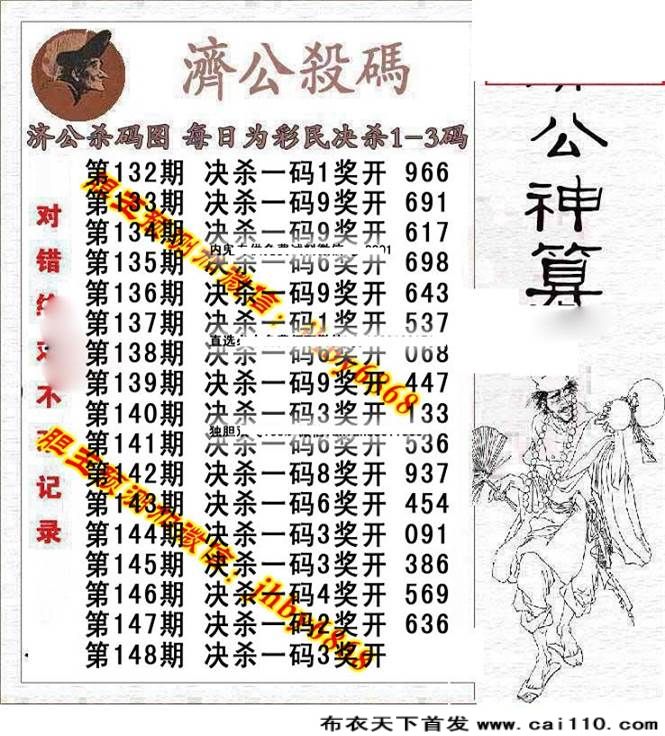 濟公殺碼
济公杀码图 每日为彩民决杀1-3码
第132期 决杀一码1奖开 966
第133期 决杀一码9奖开 691
第134期 决杀一码9奖开 617
第135期 决杀一码6奖开 698
第136期 决杀一码9奖开 643
第137期 决杀一码1奖开 537
第138期 决杀一码6奖开 068
第139期 决杀一码9奖开 447
第140期 决杀一码3奖开 133
第141期 决杀一码6奖开 536
第142期 决杀一码8奖开 937
第143期 决杀一码6奖开 454
第144期 决杀一码3奖开 091
第145期 决杀一码3奖开 386
第146期 决杀一码4奖开 569
第147期 决杀一码2奖开 636
第148期 决杀一码3奖开
对错
不
记录
直选
独胆
公神算
布衣天下首发 www.cai110.com